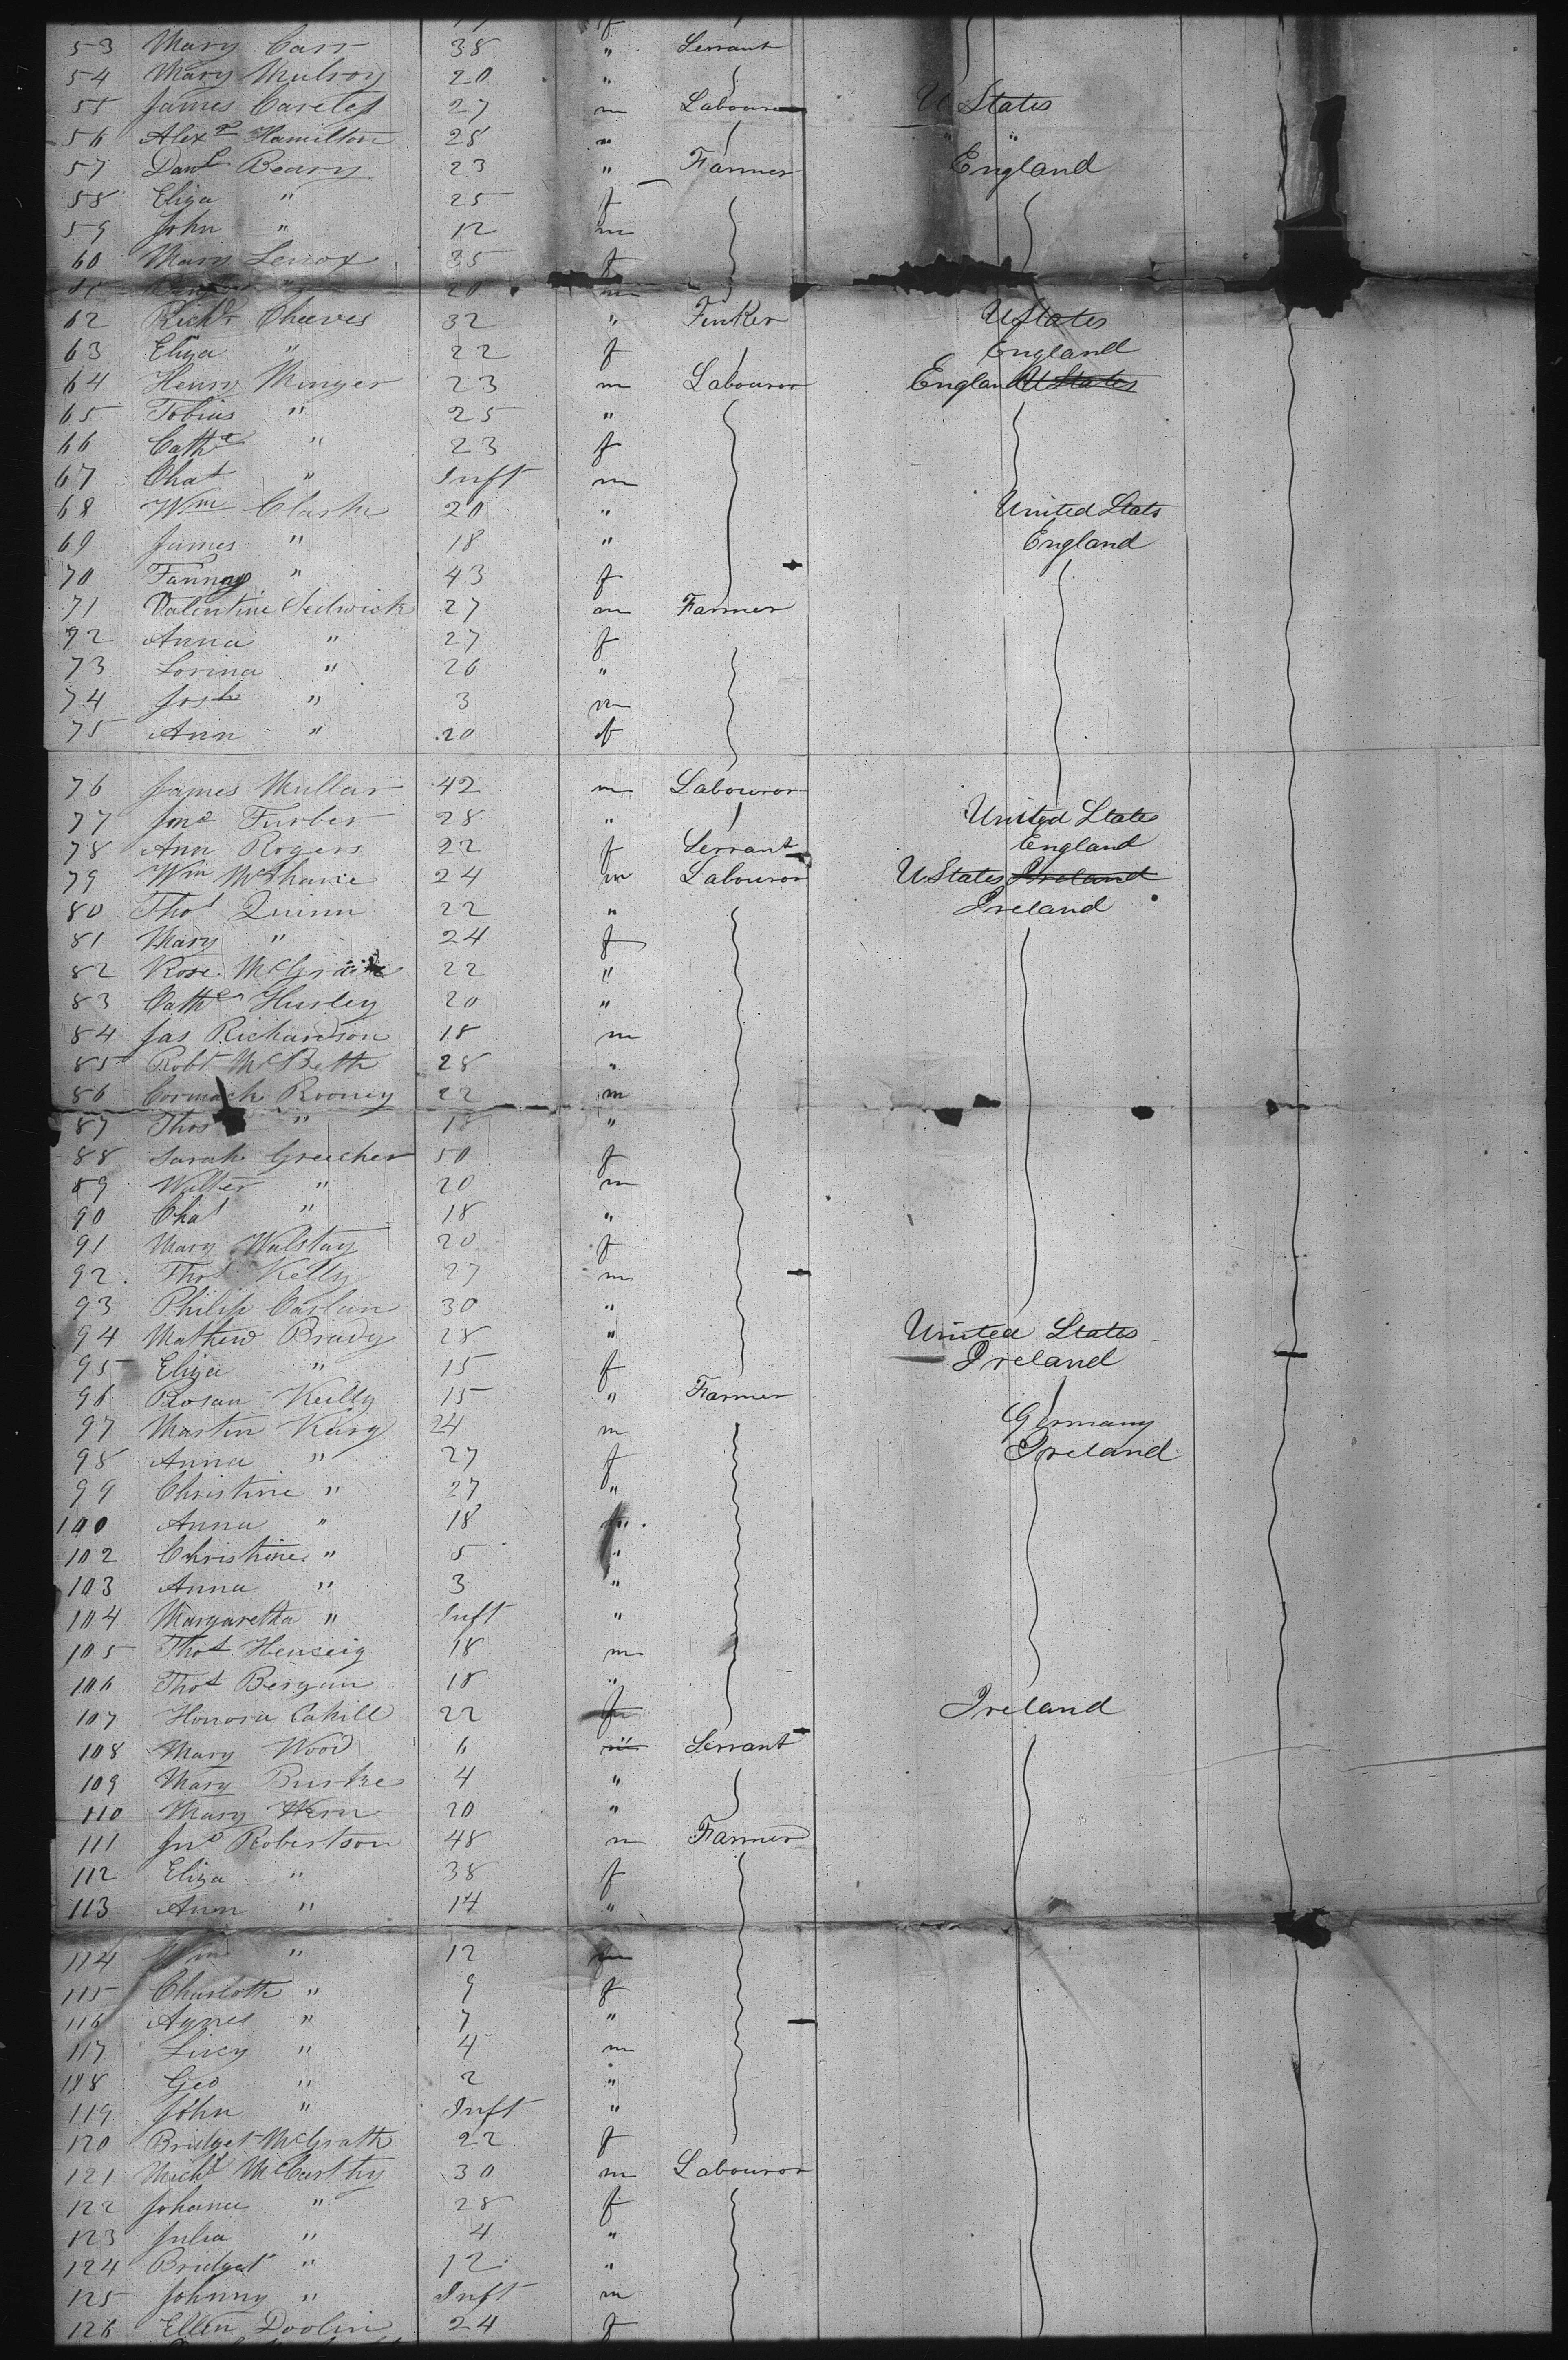 53 Mary Carr 38 " Servant
54 Mary Mulroy 20 "
55 James 27 m Labourer U States
56 Alexr Hamilton 28 " "
57 Danl Beary 23 " Farmer England
58 Eliza " 25 f
59 John " 12 m
60 Mary Lenox 35 f
61 " 20 m
62 Richd Cheeves 32 " Tinker U States
63 Eliza " 22 f England
64 Henry Minger 23 m Labouror England U States
65 Tobias " 25 "
66 Cathe " 23 f
67 Chas " Inft m
68 Wm Clarke 20 " United Stats
69 James " 18 " England
70 Fanny " 43 f
71 Valentine Sedwick 27 m Farmer
92 Anna " 27 f
73 Lorina " 26 "
74 Josh " 3 m
75 Ann " 20 f
76 James Mullar 42 m Labouror
77 Jno Furber 28 " United States
78 Ann Rogers 22 f Servant England
79 Wm McShane 24 m Labouror U States Ireland
80 Thos Quinn 22 " Ireland
81 Mary " 24 f
82 Rose 22 "
83 Cathe Hurley 20 "
84 Jas Richardson 18 m
85 Robt McBeth 28 "
86 Cormack Rooney 22 m
87 Thos " 18 "
88 Sarah Greecher 50 f
89 Walter " 20 m
90 Chas " 18 "
91 Mary Walstay 20 f
92 Thos Kelly 27 m
93 Philip Caslin 30 "
94 Mathew Brady 28 " United States
95 Eliza " 15 f Ireland
96 Rosan Keilly 15 " Farmer
97 Martin Karg 24 m Germany
98 Anna " 27 f Ireland
99 Christine " 27 "
100 Anna " 18
102 Christine " 5 "
103 Anna " 3 "
104 Margaretha " Inft "
105 Thos 18 m
106 Thos Bergan 18 "
107 Honora Cahill 22 f Ireland
108 Mary Wood 6 Servant
109 Mary Burke 4 "
110 Mary 20 "
111 Jno Robertson 48 m Farmer
112 Eliza " 38 f
113 Ann " 14 "
114 Wm " 12 m
115 Charloth " 9 f
116 Agnes " 7 "
117 Livey " 4 m
118 Geo " 2 "
119 John " Inft "
120 Bridget McGrath 22 f
121 Michl McCarthy 30 m Labouror
122 Johana " 28 f
123 Julia " 4 "
124 Bridget " 12 "
125 Johnny " Inft m
126 Ellen Doolin 24 f